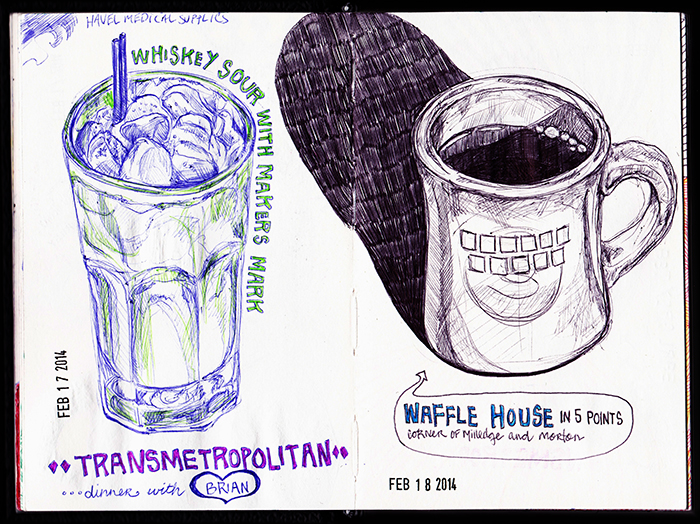 HAVEL MEDICAL SUPPLIES
WHISKEY SOUR WITH MAKERS MARK
FEB 17 2014
TRANSMETROPOLITAN
...dinner with BRIAN
WAFFLE HOUSE IN 5 POINTS
CORNER OF Milledge and morton
FEB 18 2014